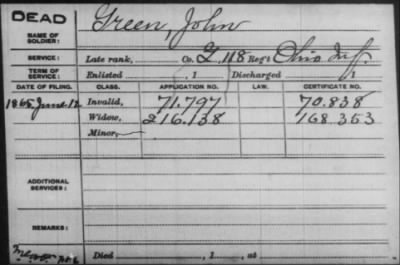 DEAD
NAME OF SOLDIER: Green, John
SERVICE: Late rank, Co. G, 118 Reg't Ohio Inf.
TERM OF SERVICE: Enlisted , 1 Discharged , 1
DATE OF FILING. CLASS. APPLICATION NO. LAW. CERTIFICATE NO.
1865, June 12 Invalid, 71.797 70.838
Widow, 216.138 168 353
Minor,
ADDITIONAL SERVICES:
REMARKS:
Died , 1 , at